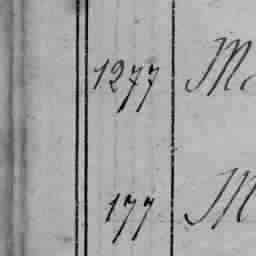 1277 M
177 M